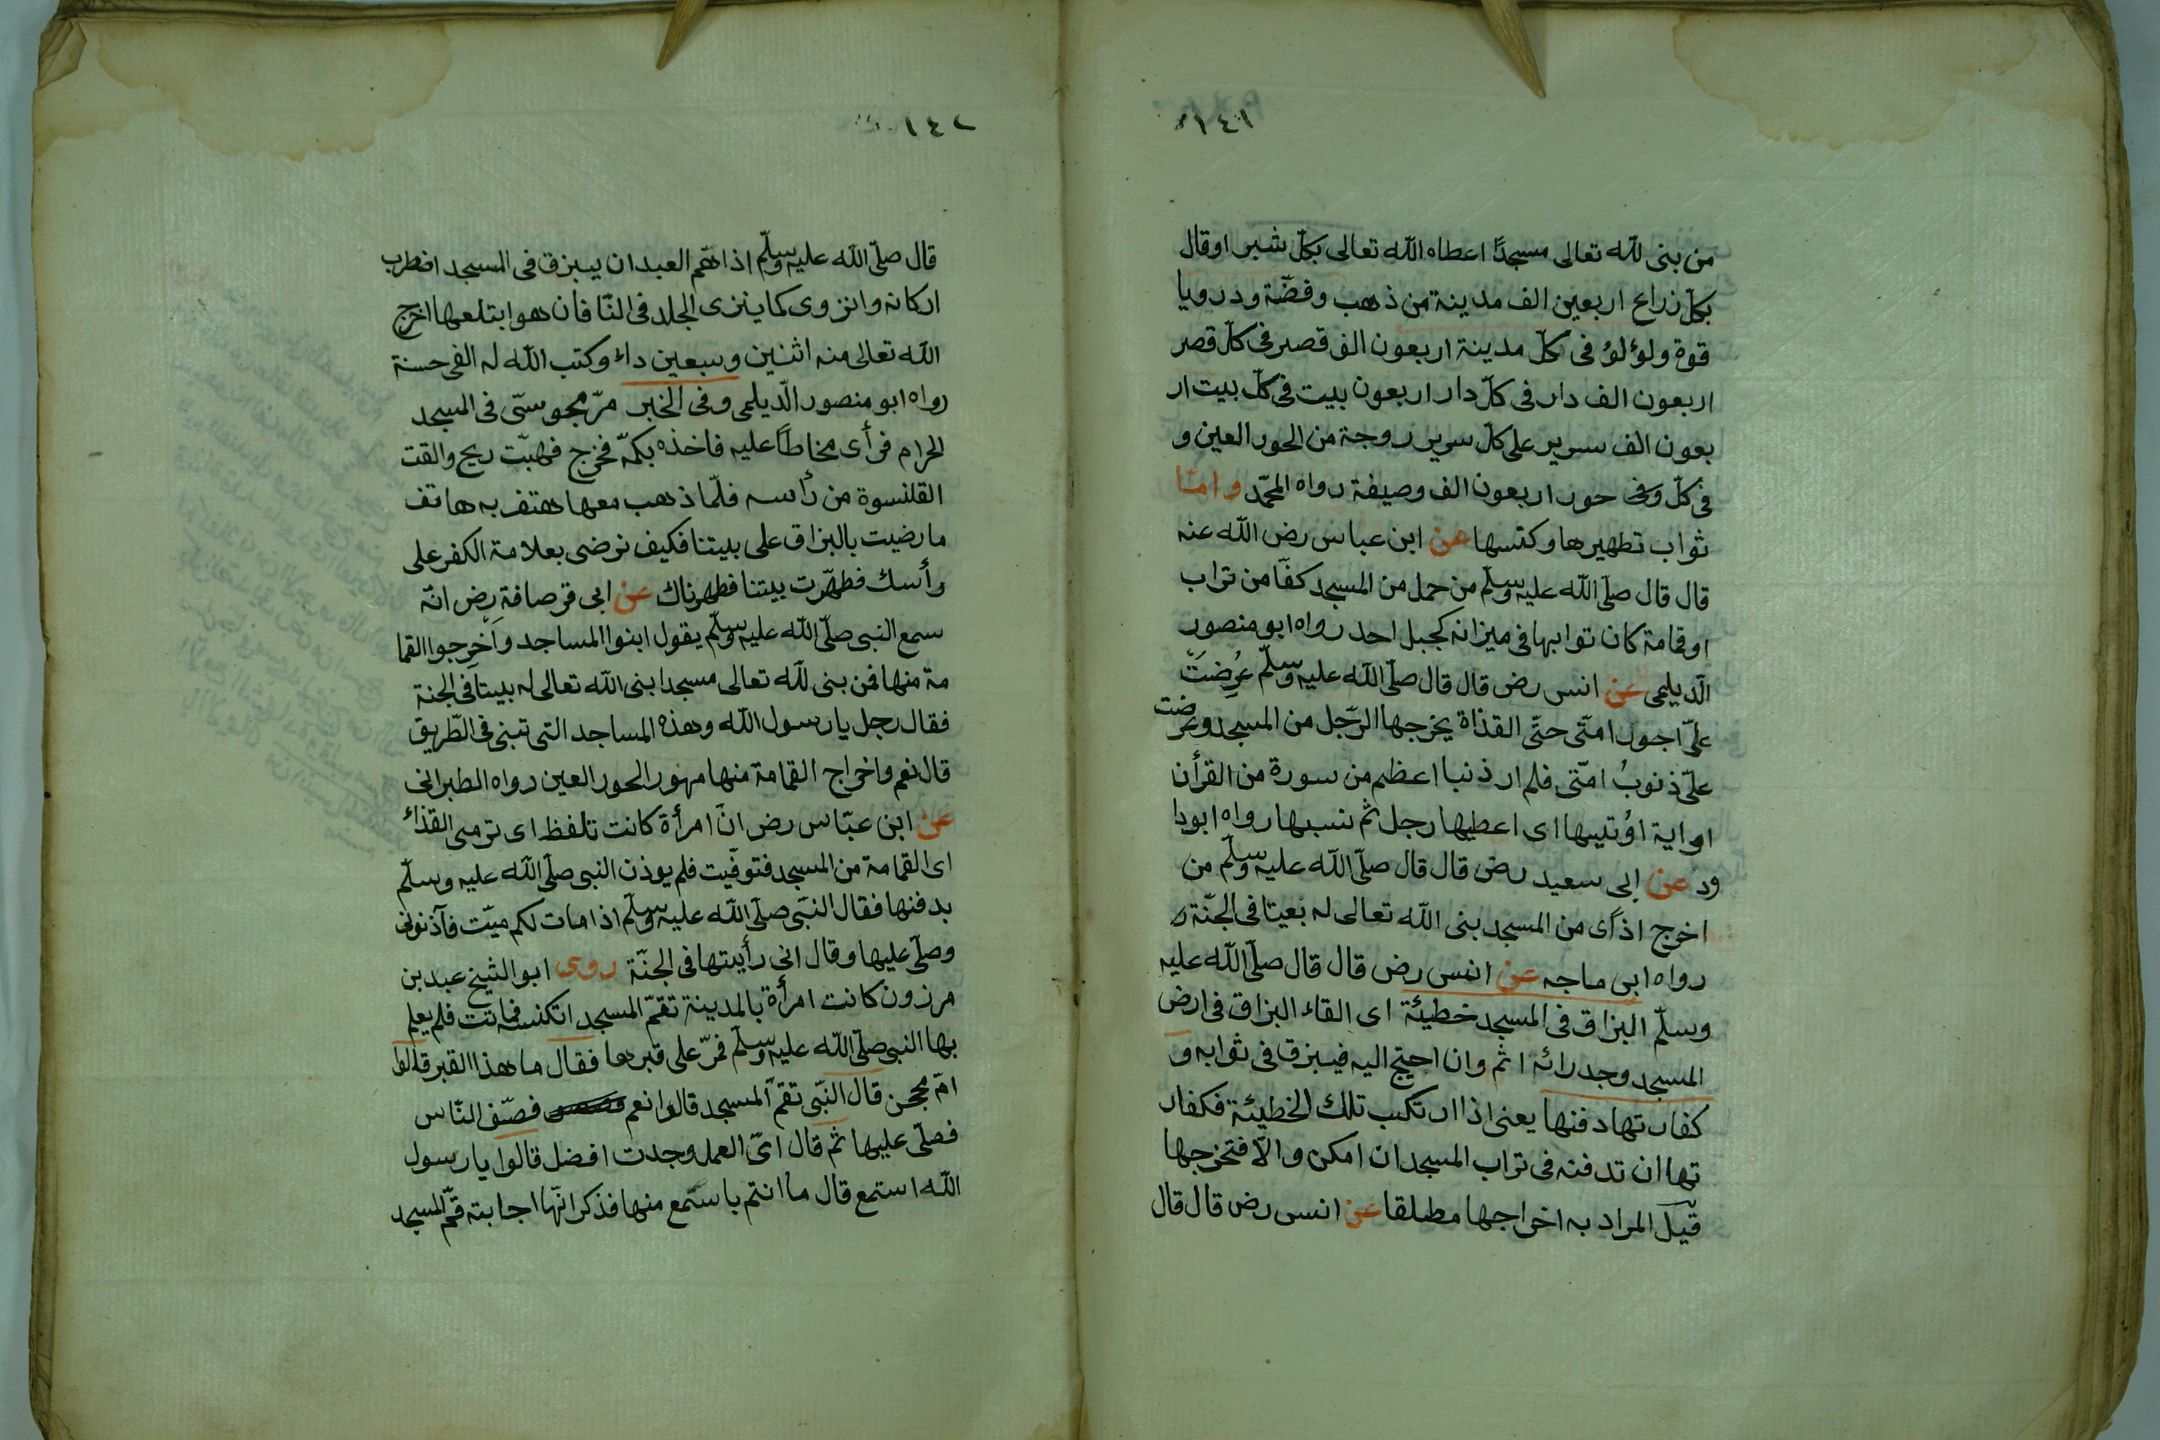 ١٤١
من بنى لله تعالى مسجدًا اعطاه الله تعالى بكلّ شبر اوقال
بكلّ زراع اربعين الف مدينة من ذهب وفضّة ودرويا
قوة ولؤلؤُ فى كلّ مدينة اربعون الف قصر فى كلّ قصر
اربعون الف دار فى كلّ دار اربعون بيت فى كلّ بيت ار
بعون الف سرير على كلّ سرير زوجة من الحور العين و
فى كلّ وفى حور اربعون الف وصيفة رواه المحمّد وامّا
ثواب تطهيرها وكنسها عن ابن عباس رض الله عنه
قال قال صلّى الله عليه وسلّم من حمل من المسجد كفّا من تراب
اوقمامة كان ثوابها فى ميزانه كجبل احد رواه ابو منصور
الدّيلمى عن انس رض قال قال صلّى الله عليه وسلّم عُرِضَتْ
علىّ اجور امّتى حتّى القذاة يخرجها الرّجل من المسجد وعرضت
علىّ ذنوبُ امّتى فلم ار ذنبا اعظم من سورة من القرأن
اواية اوُتيها اى اعطيها رجل ثم نسيها رواه ابودا
ود عن ابى سعيد رض قال قال صلّى الله عليه وسلّم من
اخرج اذًى من المسجد بنى الله تعالى له بيتا فى الجنّة
رواه ابى ماجه عن انس رض قال قال صلّى الله عليه
وسلّم البزاق فى المسجد خطيئة اى القاء البزاق فى ارض
المسجد وجدرائه اثم وان احتيج اليه فيبزق فى ثوابه و
كفارتها دفنها يعنى اذا ارتكب تلك الخطيئة فكفار
تها ان تدفنه فى تراب المسجد ان امكن والّا فتخرجها
قيل المراد به اخراجها مطلقا عن انس رض قال قال
١٤٢
قال صلّى الله عليه وسلّم اذا همّ العبد ان يبزق فى المسجد اضطرب
اركانه وانزوى كما ينزى الجلد فى النّا فان هو ابتلعها اخرج
الله تعالى منه اثنين وسبعين داء وكتب الله له الفى حسنة
رواه ابو منصور الدّيلمى وفى الخبر مرّ مجوسىّ فى المسجد
الحرام فرأى مخاطاً عليه فاخذه بكمّه فخرج فهبّت ريح والقت
القلنسوة من رأسه فلمّا ذهب معها هتف به هاتف
ما رضيت بالبزاق على بيتنا فكيف نرضى بعلامة الكفر على
رأسك فطهّرت بيتنا فطهرناك عن ابى قرصافة رض انّه
سمع النبى صلّى الله عليه وسلّم يقول ابنوا المساجد واخرجوا القما
مة منها فمن بنى لله تعالى مسجدا بنى الله تعالى له بيتا فى الجنة
فقال رجل يا رسول الله وهذه المساجد التى تبنى فى الطّريق
قال نعم واخراج القمامة منها مهور الحور العين رواه الطبرانى
عن ابن عبّاس رض انّ امرأة كانت تلفظ اى ترمى القذاء
اى القمامة من المسجد فتوفّيت فلم يوذن النبى صلّى الله عليه وسلّم
بدفنها فقال النبى صلّى الله عليه وسلّم اذا مات لكم ميّت فآذنونى
وصلّى عليها وقال انى رأيتها فى الجنّة روى ابوالشيخ عبد بن
مرزون كانت امرأة بالمدينة تقمّ المسجد اتكنسه فماتت فلم يعلم
بها النبى صلّى الله عليه وسلّم فمرّ على قبرها فقال ما هذا القبر قالوا
امّ محجن قال النّبى تقمّ المسجد قالوا نعم فصّف النّاس
فصلّى عليها ثم قال اىّ العمل وجدت افضل قالوا يا رسول
الله استمع قال ما انتم باستمع منها فذكر انّها اجابته قمّ المسجد